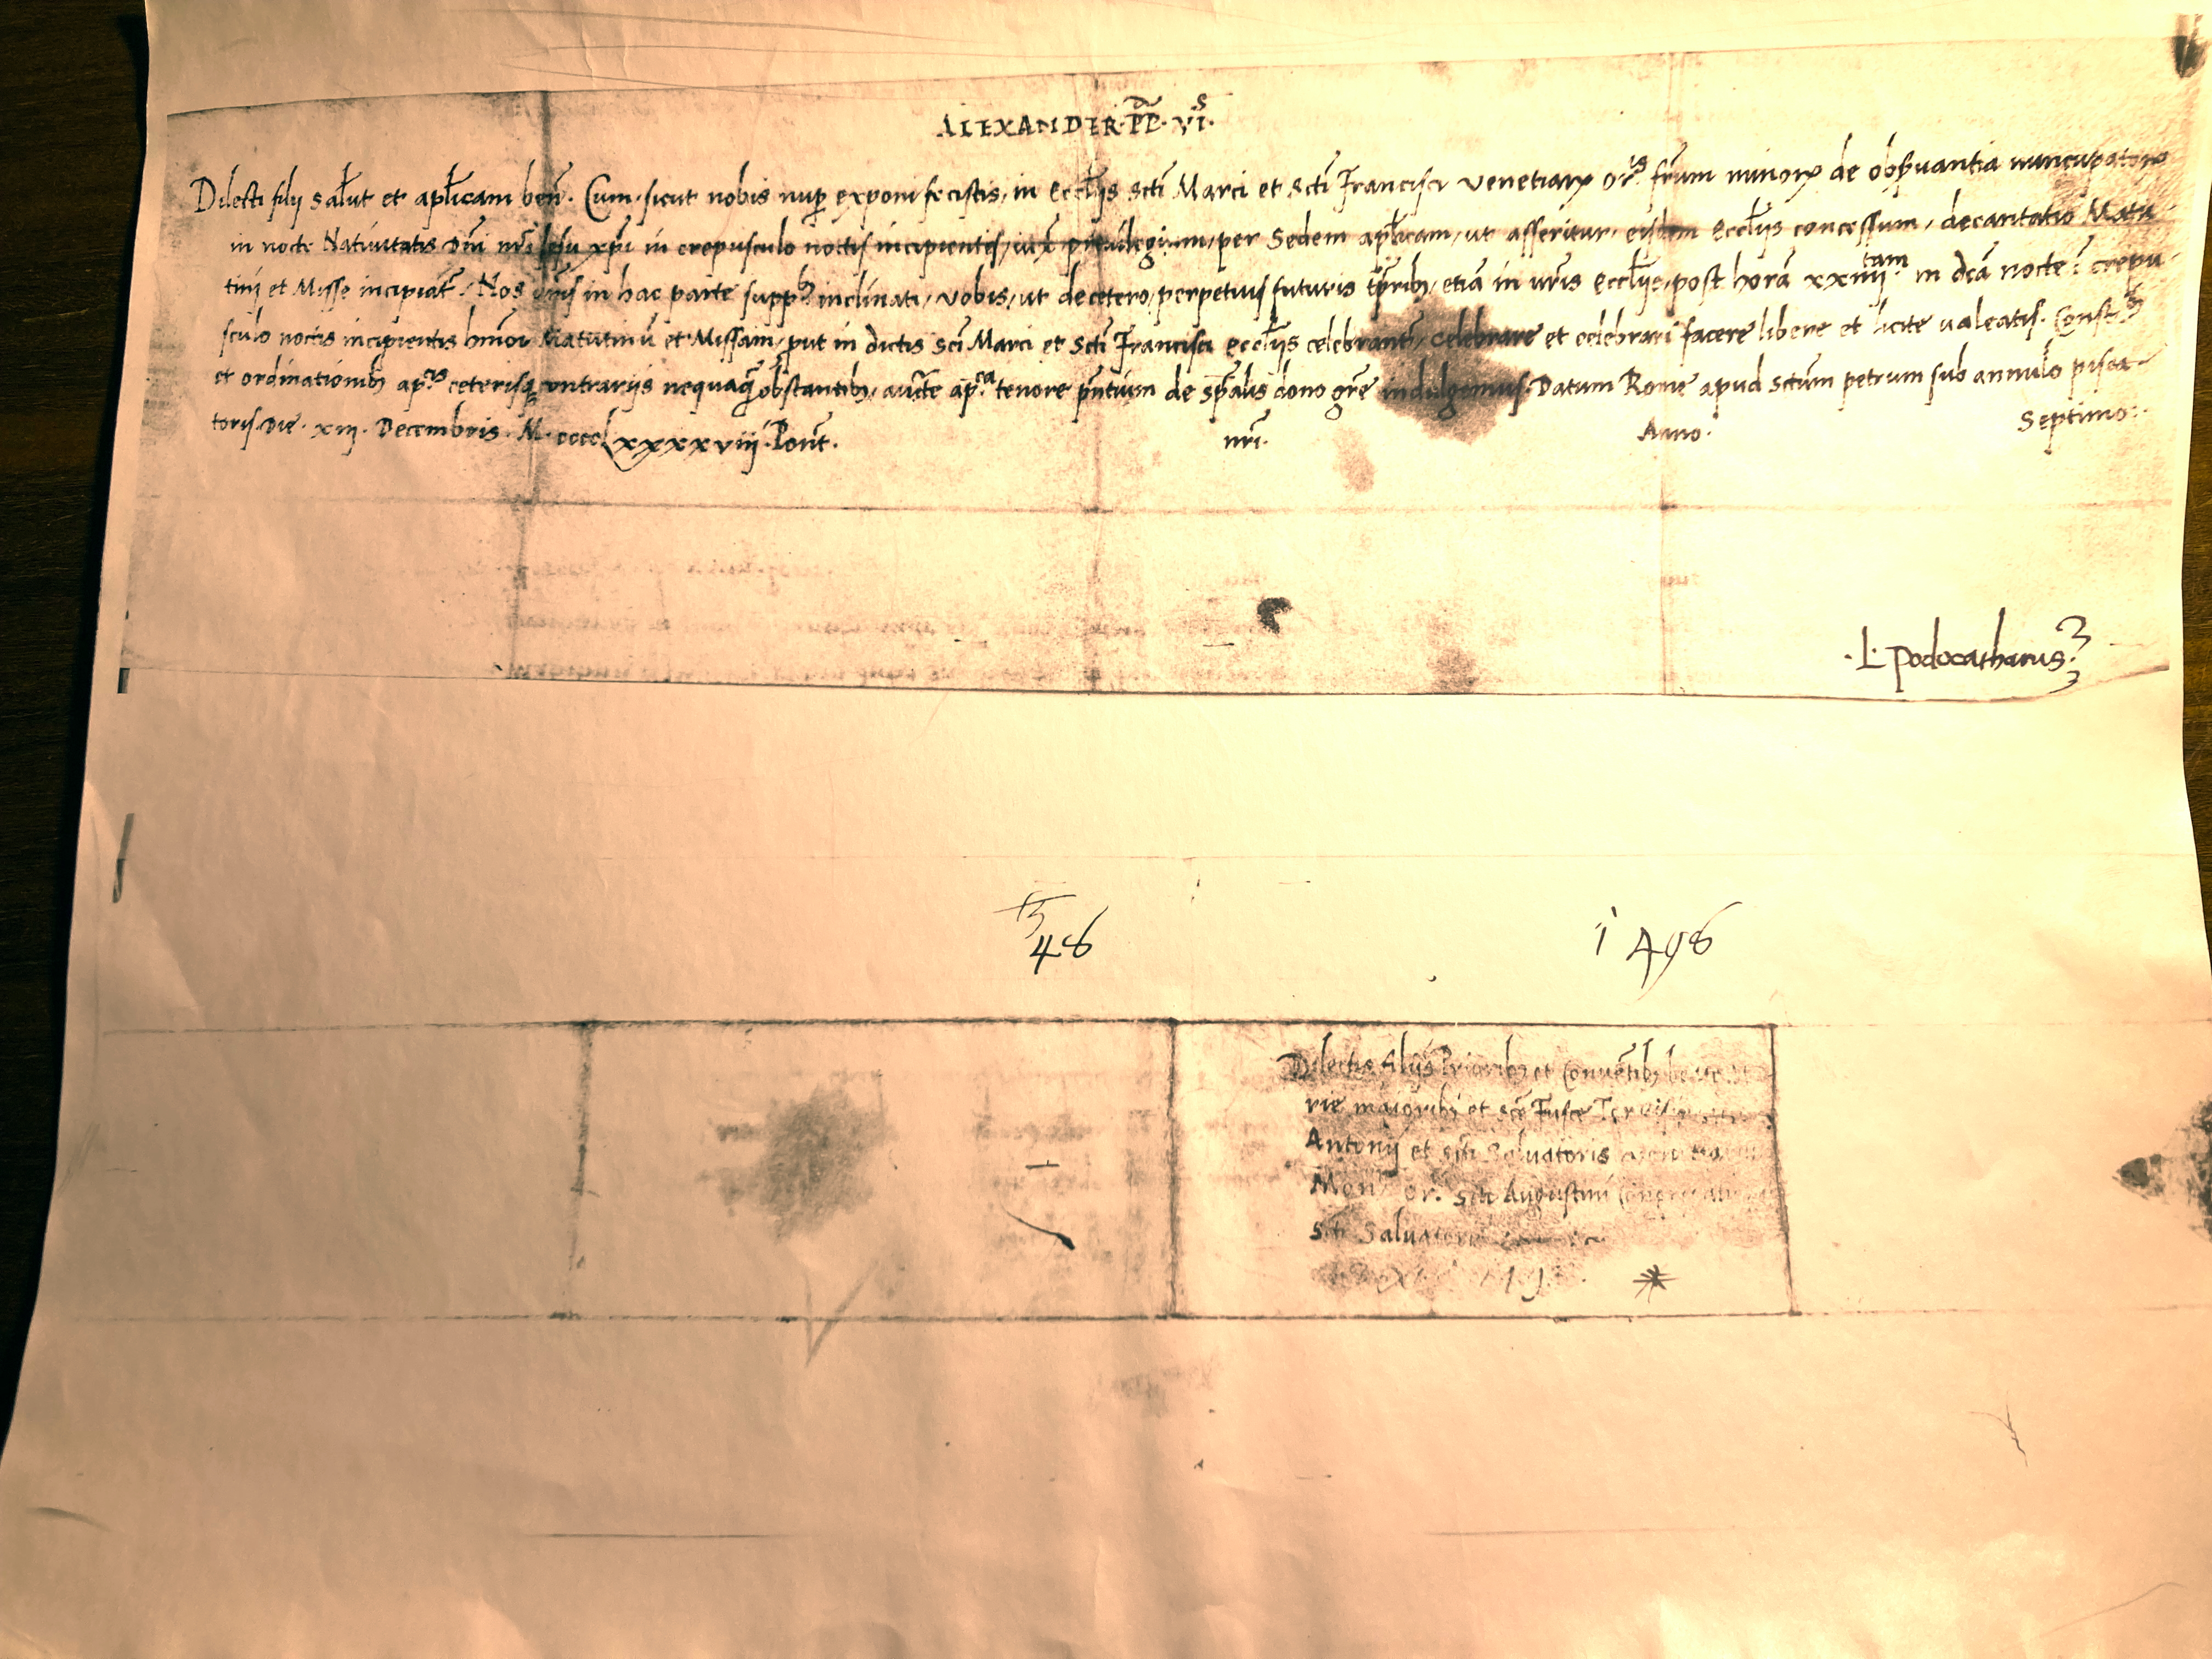 ALEXANDER· PP̃· VI·
Dilecti filij salut̃ et aplicam ben̄. Cum· sicut nobis nup exponi fecistis, in Eccl̃ijs Sctĩ Marci et Sctĩ Francisci Venetiarꝝ or.is fr̃um minorꝝ de obs̃uantia nuncupatorꝝ
in nocte Natiuitatis Dñi nr̃i Iesu xp̃i in crepusculo noctis incipientis, iux̃ priuilegium, per Sedem aplicam, ut asseritur, eisdem Eccl̃ijs concessum, decantatio Matu
tini et Misse incipiat̃. Nos ur̃is in hac parte supp.bus inclinati, Vobis, ut decetero, perpetuis futuris tp̃ribꝫ, etiã in ur̃is Eccl̃ijs, post horã xxiiij tam in dc̃ã nocte ĩ crepu
sculo noctis incipientis hmõi Matutinũ et Missam, put in dictis Sc̃i Marci et Sctĩ Francisci Eccl̃ijs celebrant̃, celebrare et celebrari facere libere et licite ualeatis. Const.bus
et ordinationibꝫ ap.cis ceterisqꝫ contrarijs nequaq̃ obstantibꝫ, auct̃e ap.ca tenore pñtium de sp̃alis dono gr̃e indulgemus. Datum Rome apud Sctũm petrum sub annulo pisca
toris Die· xiij· Decembris· M· cccclxxxxviij· Pont̃. nr̃i· Anno· Septimo·
·L· Podocatharus·
48
1498
Dilectis filijs Prioribꝫ et Conuẽtibꝫ
rie maioribꝫ et Scẽ Fusce
Antonij et Sctĩ Saluatoris
Mon or. Sctĩ Augustini
Sctĩ Saluatoris